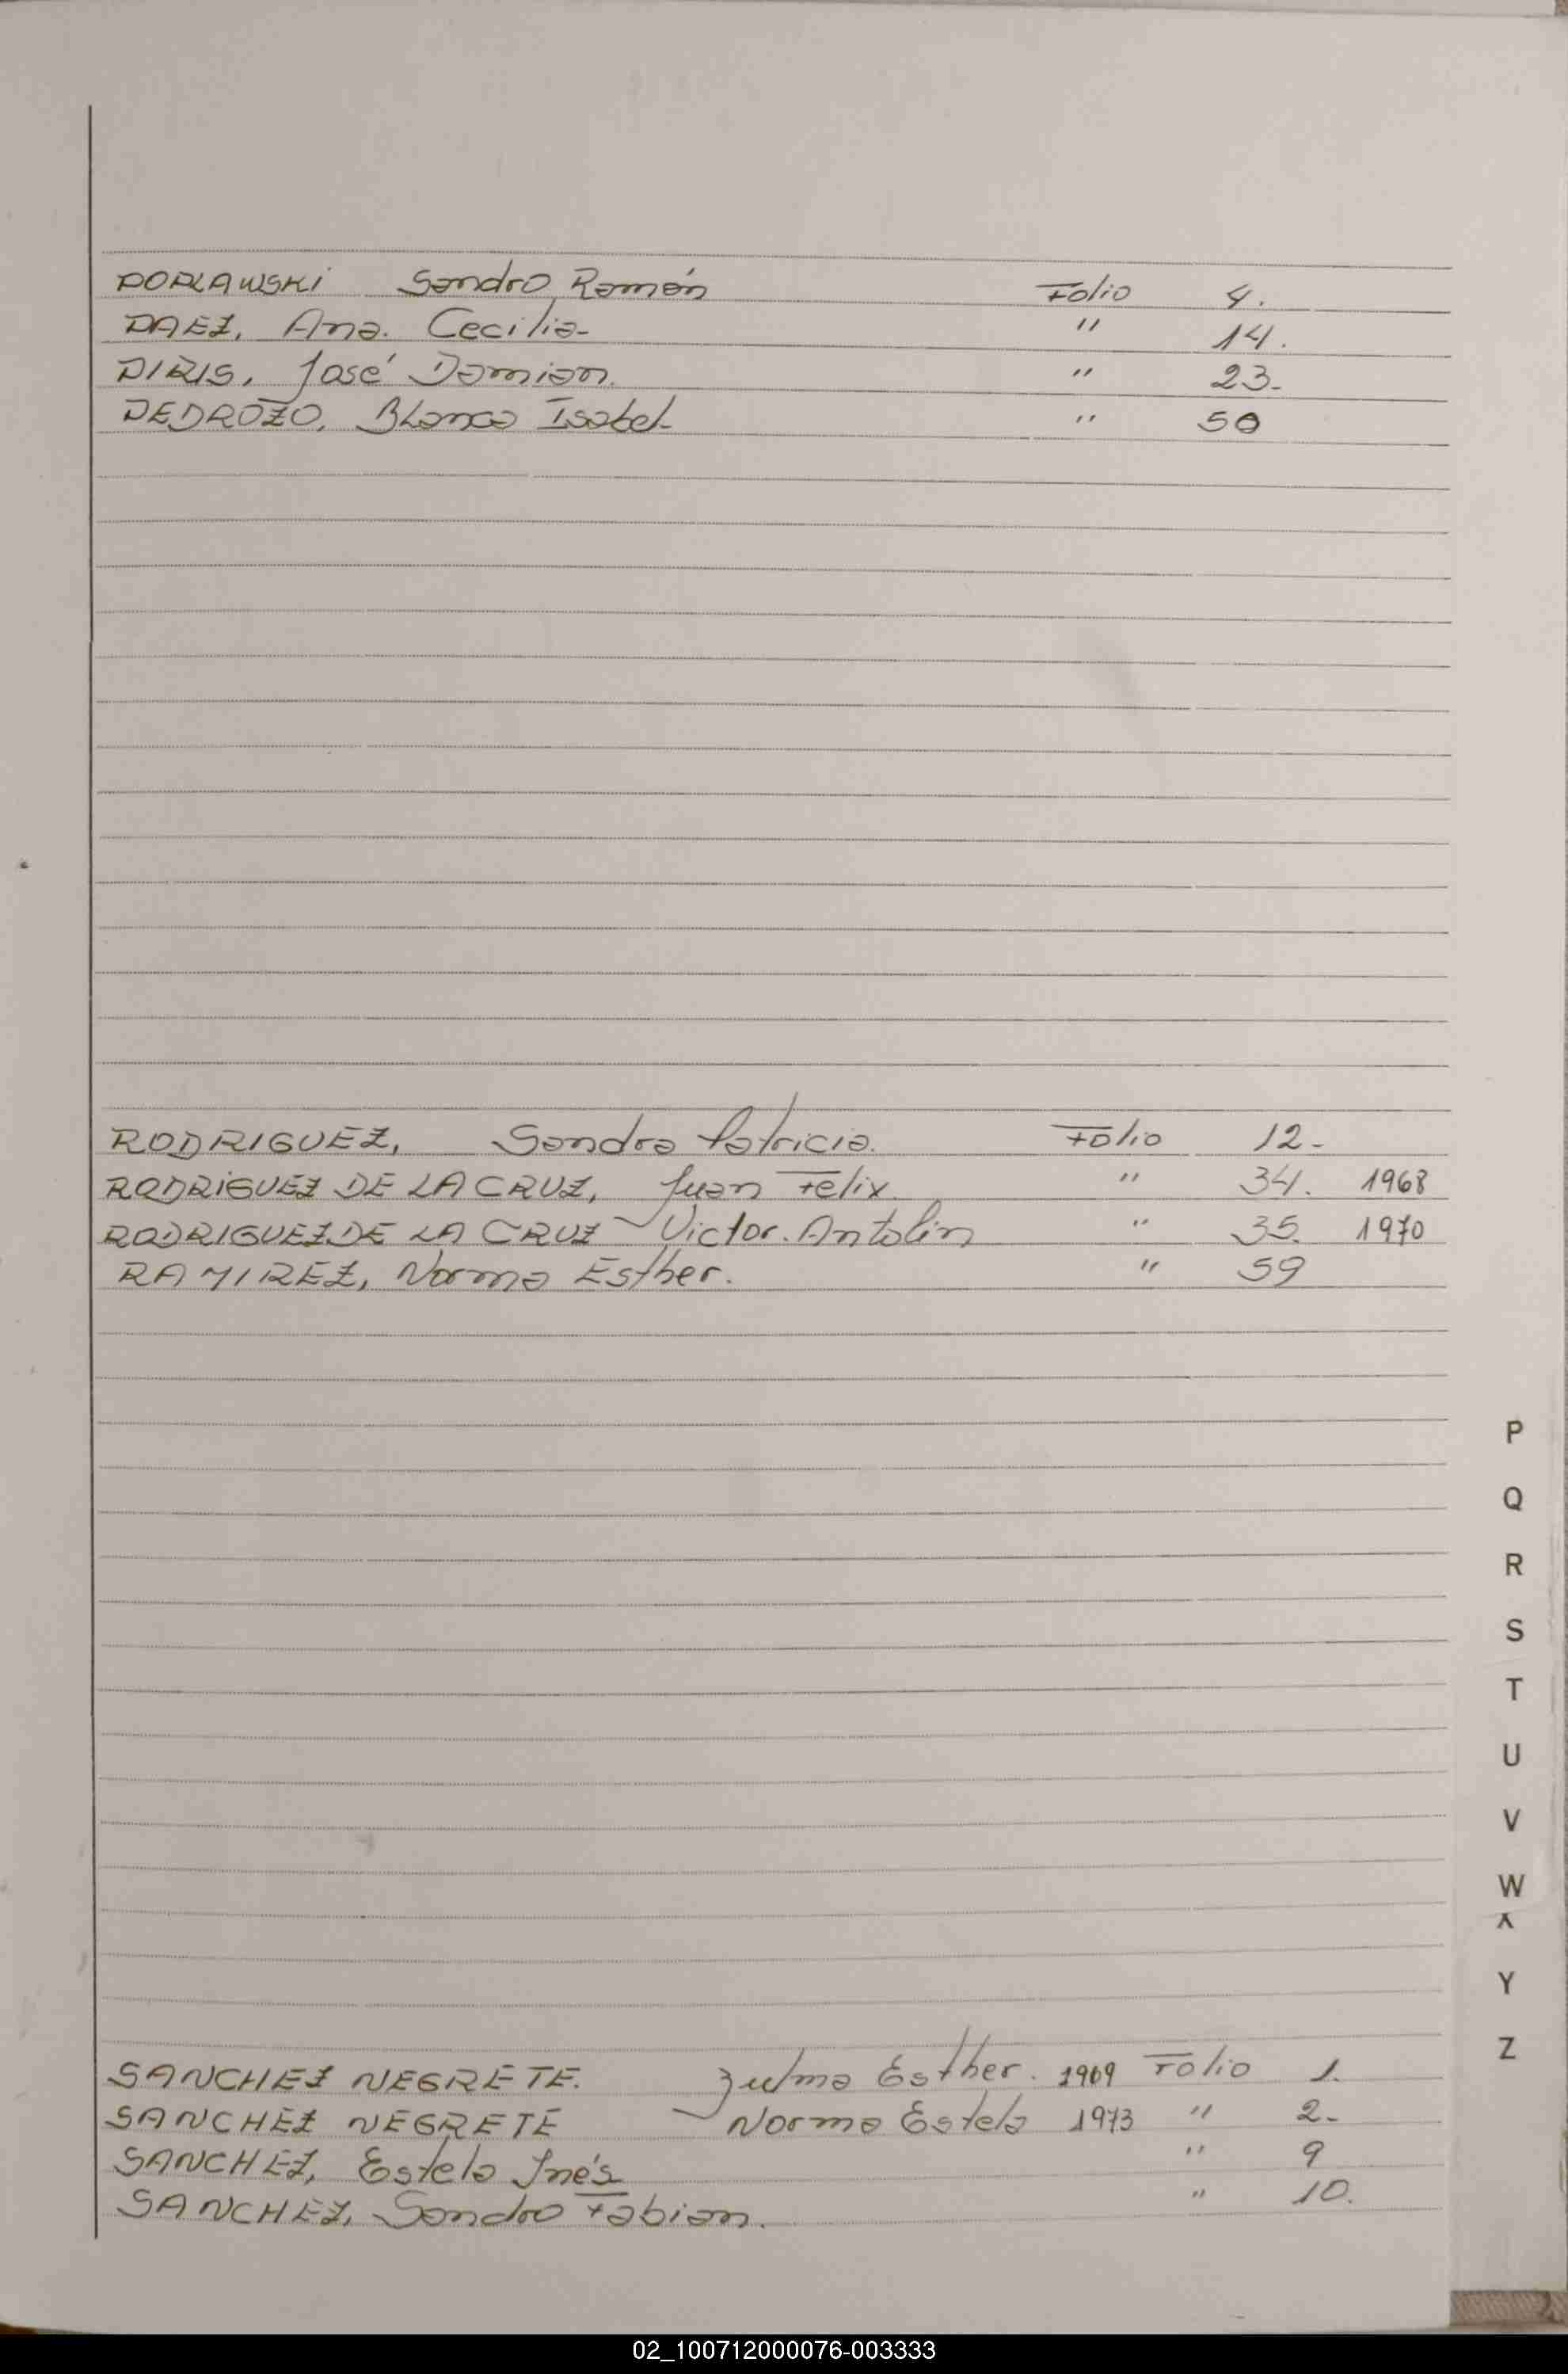 POPLAWSKI Sandro Ramón Folio 4.
PAEZ, Ana. Cecilia- " 14.
PIRIS, José Damian. " 23-
PEDROZO, Blanca Isabel " 50
RODRIGUEZ, Sandra Patricia. Folio 12-
RODRIGUEZ DE LA CRUZ, Juan Felix. " 34. 1968
RODRIGUEZ DE LA CRUZ Victor. Antolin " 35. 1970
RAMIREZ, Norma Esther. " 59
P
Q
R
S
T
U
V
W
X
Y
Z
SANCHEZ NEGRETE. Zulma Esther. 1969 Folio 1.
SANCHEZ NEGRETE Norma Estela 1973 " 2-
SANCHEZ, Estela Inés " 9
SANCHEZ, Sandro Fabian. " 10.
02_100712000076-003333